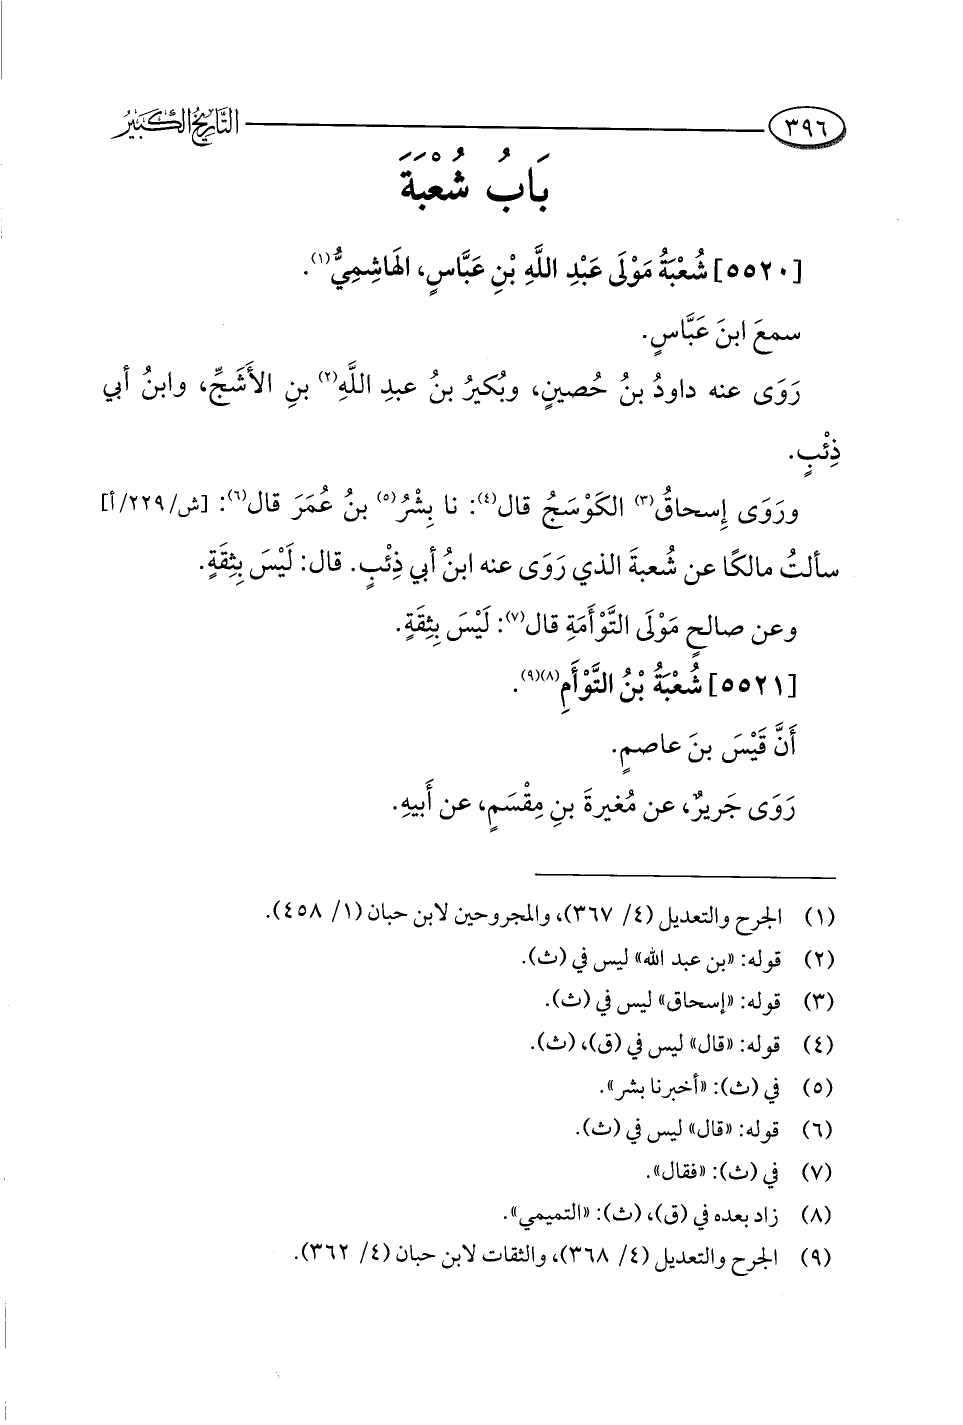 ٣٩٦ التَّارِيخُ الكَبِيرُ
بَابُ شُعْبَةَ
[٥٥٢٠] شُعْبَةُ مَوْلَى عَبْدِ اللَّهِ بْنِ عَبَّاسٍ، الهَاشِمِيُّ(١).
سمعَ ابنَ عَبَّاسٍ.
رَوَى عنه داودُ بنُ حُصينٍ، وبُكيرُ بنُ عبدِ اللَّهِ(٢) بنِ الأَشَجِّ، وابنُ أبي
ذِئْبٍ.
ورَوَى إِسحاقُ(٣) الكَوْسَجُ قال(٤): نا بِشْرُ(٥) بنُ عُمَرَ قال(٦): [ش/٢٢٩/أ]
سألتُ مالكًا عن شُعبةَ الذي رَوَى عنه ابنُ أبي ذِئْبٍ. قال: لَيْسَ بِثِقَةٍ.
وعن صالحٍ مَوْلَى التَّوْأَمَةِ قال(٧): لَيْسَ بِثِقَةٍ.
[٥٥٢١] شُعْبَةُ بْنُ التَّوْأَمِ(٨)(٩).
أَنَّ قَيْسَ بنَ عاصمٍ.
رَوَى جَريرٌ، عن مُغيرةَ بنِ مِقْسَمٍ، عن أَبيهِ.
(١) الجرح والتعديل (٤/ ٣٦٧)، والمجروحين لابن حبان (١/ ٤٥٨).
(٢) قوله: «بن عبد الله» ليس في (ث).
(٣) قوله: «إسحاق» ليس في (ث).
(٤) قوله: «قال» ليس في (ق)، (ث).
(٥) في (ث): «أخبرنا بشر».
(٦) قوله: «قال» ليس في (ث).
(٧) في (ث): «فقال».
(٨) زاد بعده في (ق)، (ث): «التميمي».
(٩) الجرح والتعديل (٤/ ٣٦٨)، والثقات لابن حبان (٤/ ٣٦٢).